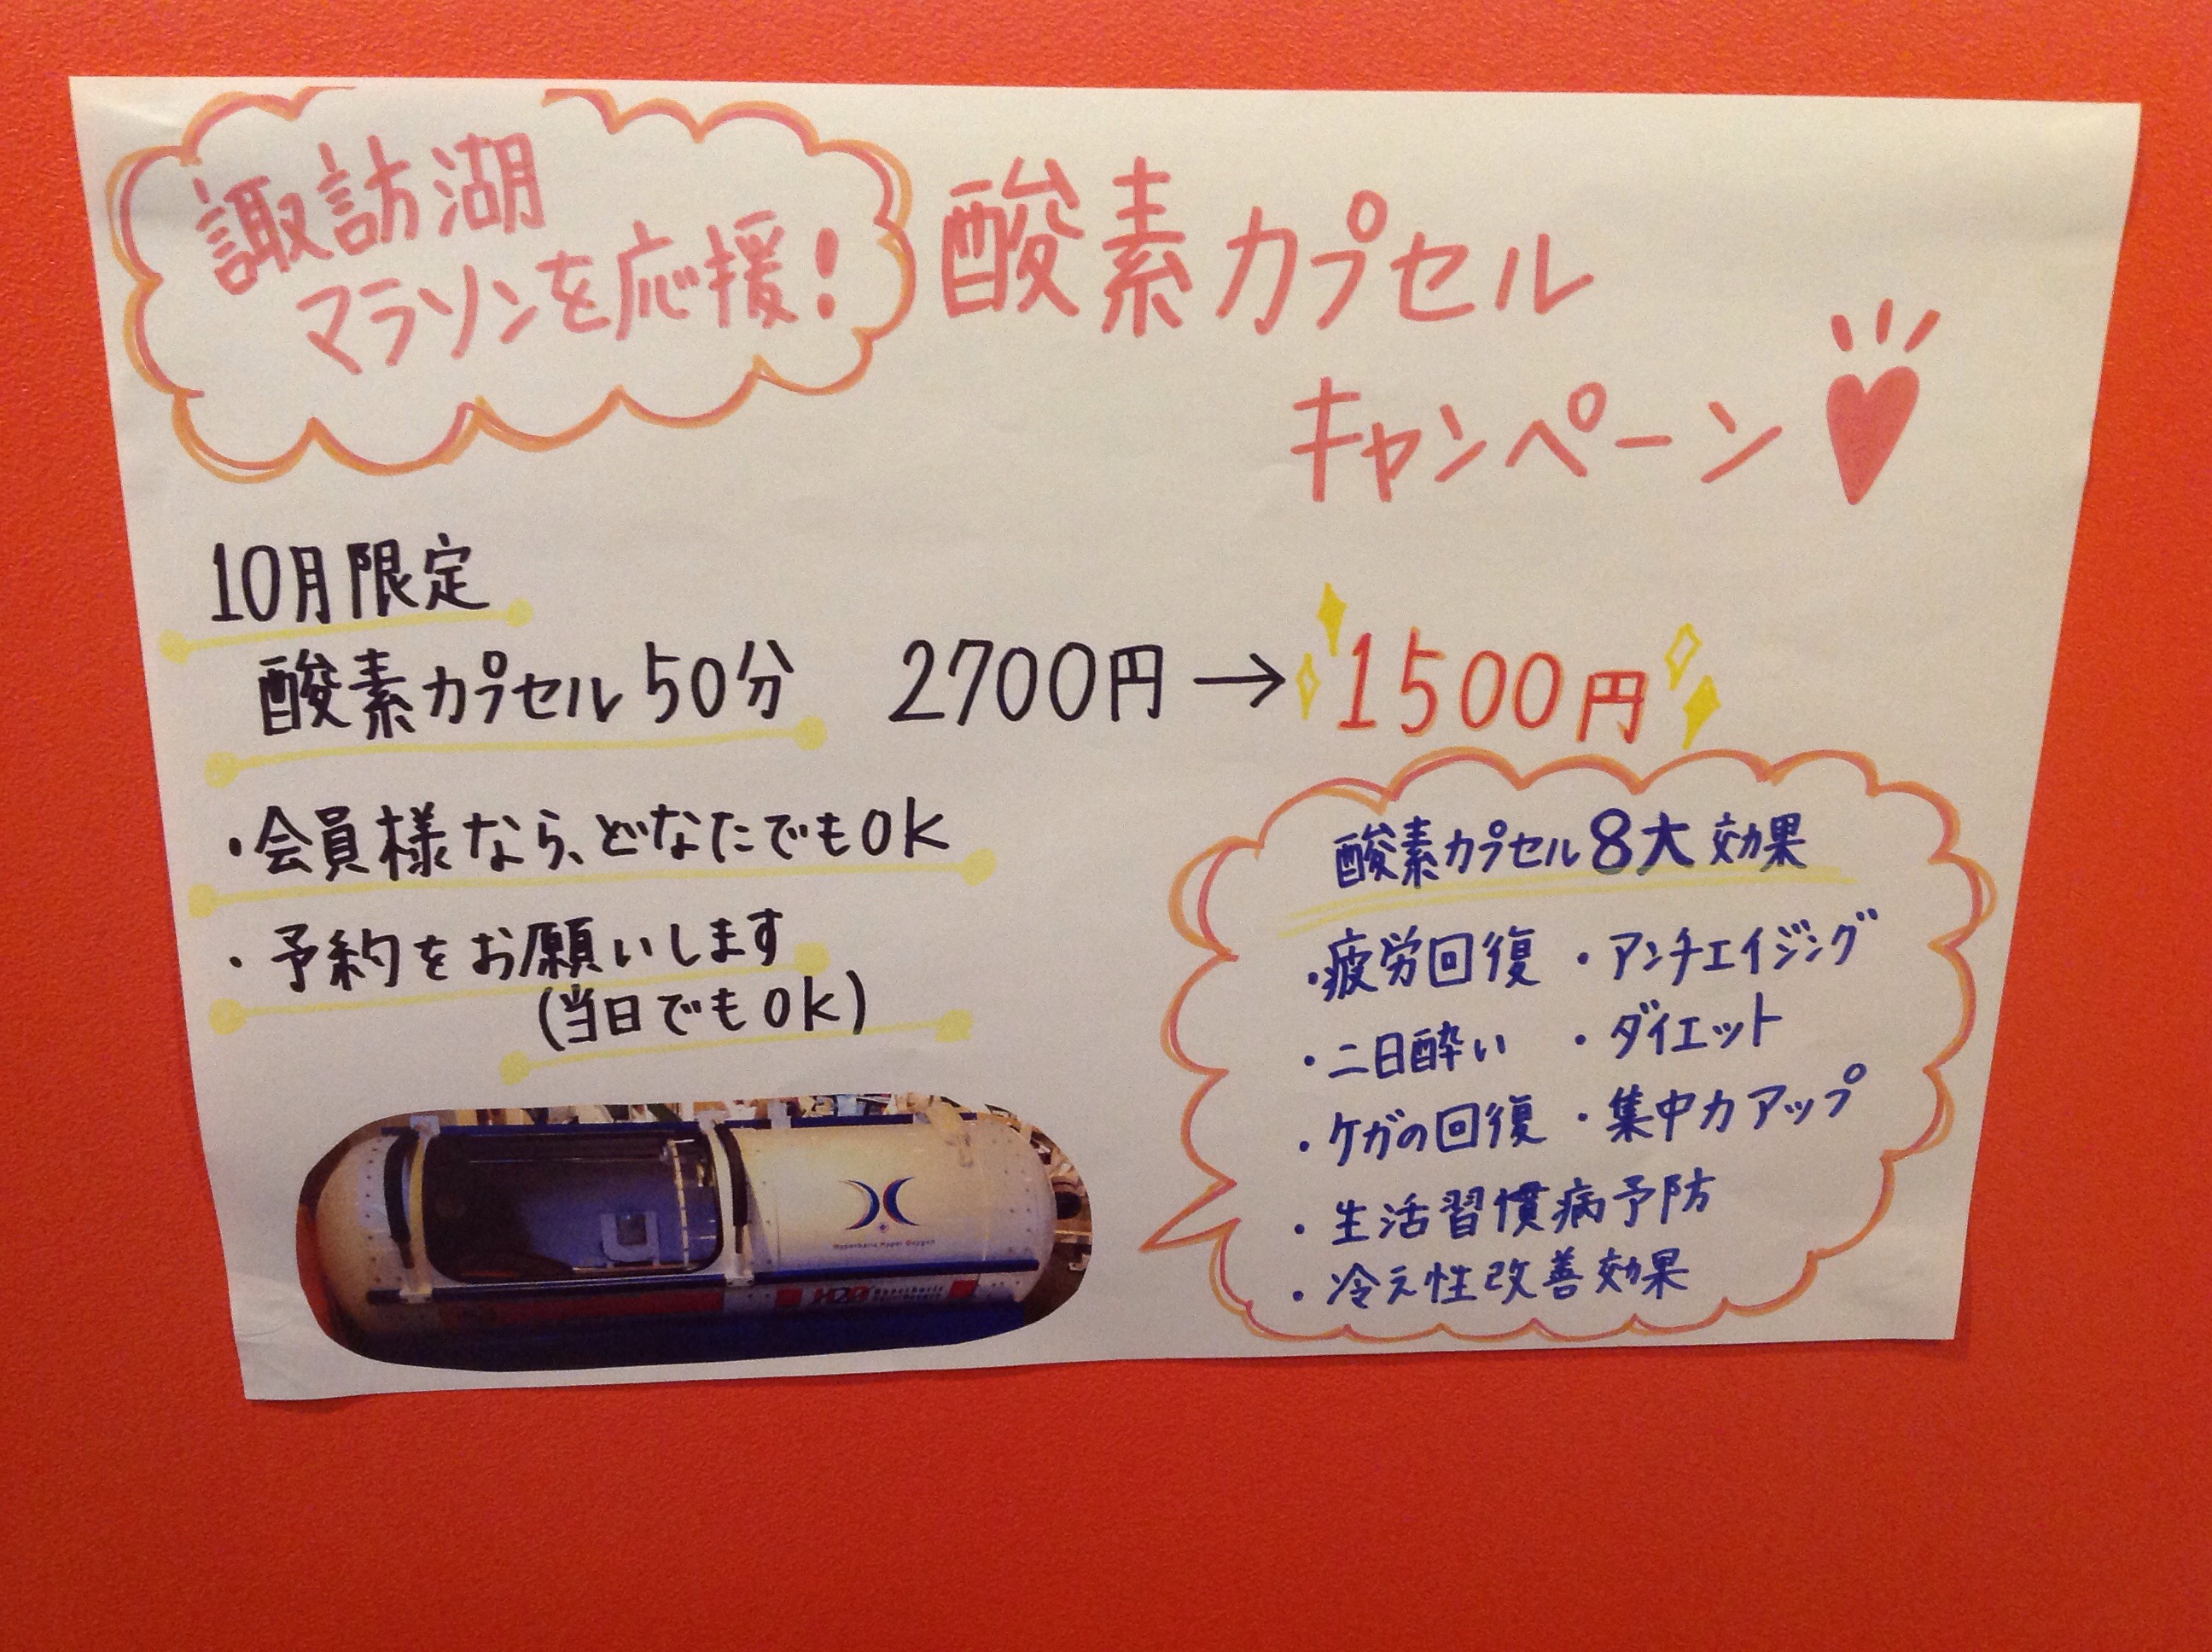 諏訪湖
マラソンを応援!
酸素カプセル
キャンペーン
10月限定
酸素カプセル50分 2700円→1500円
・会員様なら、どなたでもOK
・予約をお願いします
(当日でもOK)
酸素カプセル8大効果
・疲労回復 ・アンチエイジング
・二日酔い ・ダイエット
・ケガの回復 ・集中力アップ
・生活習慣病予防
・冷え性改善効果
Hyperbaric Hyper Oxygen
H2O